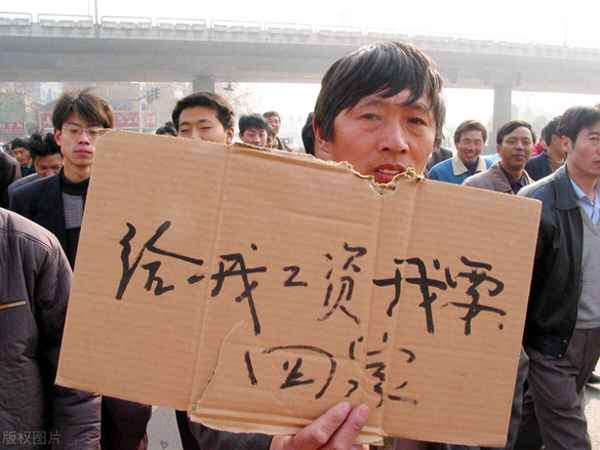 给我工资我要
回家
版权图片